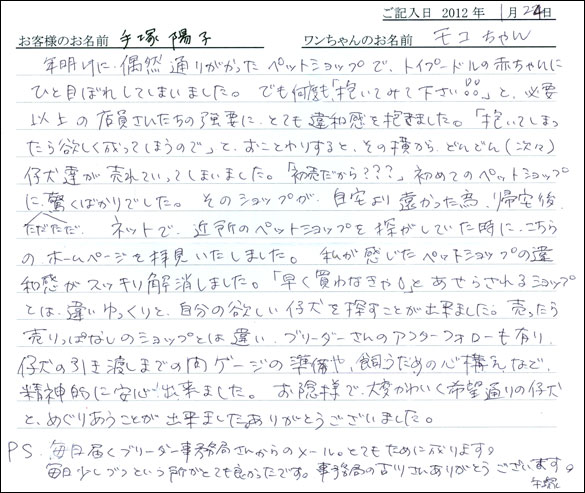 ご記入日 2012年 1月24日
お客様のお名前 手塚 陽子 ワンちゃんのお名前 モコちゃん
年明けに、偶然通りがかったペットショップで、トイプードルの赤ちゃんに
ひと目ぼれしてしまいました。でも何度も「抱いてみて下さい!!」と、必要
以上の店員さんたちの強要に、とても違和感を抱きました。「抱いてしまっ
たら欲しく成ってしまうので」と、おことわりすると、その横から、どんどん(次々)
仔犬達が売れていってしまいました。「初売だから???」初めてのペットショップ
に、ただただ驚くばかりでした。そのショップが、自宅より遠かった為、帰宅後、
ネットで、近所のペットショップを探がしていた時に、こちら
のホームページを拝見いたしました。私が感じたペットショップの違
和感がスッキリ解消しました。「早く買わなきゃ。」とあせらされるショップ
とは、違いゆっくりと、自分の欲しい仔犬を探すことが出来ました。売ったら
売りっぱなしのショップとは違い、ブリーダーさんのアフターフォローも有り、
仔犬の引き渡しまでの間ゲージの準備や、飼うための心構えなど、
精神的に安心出来ました。お陰様で、大変かわいく希望通りの仔犬
と、めぐりあうことが出来ましたありがとうございました。
PS. 毎日届くブリーダー事務局さんからのメール。とてもために成ります。
毎日少しづつという所がとても良かったです。事務局の吉川さんありがとうございます。
手塚